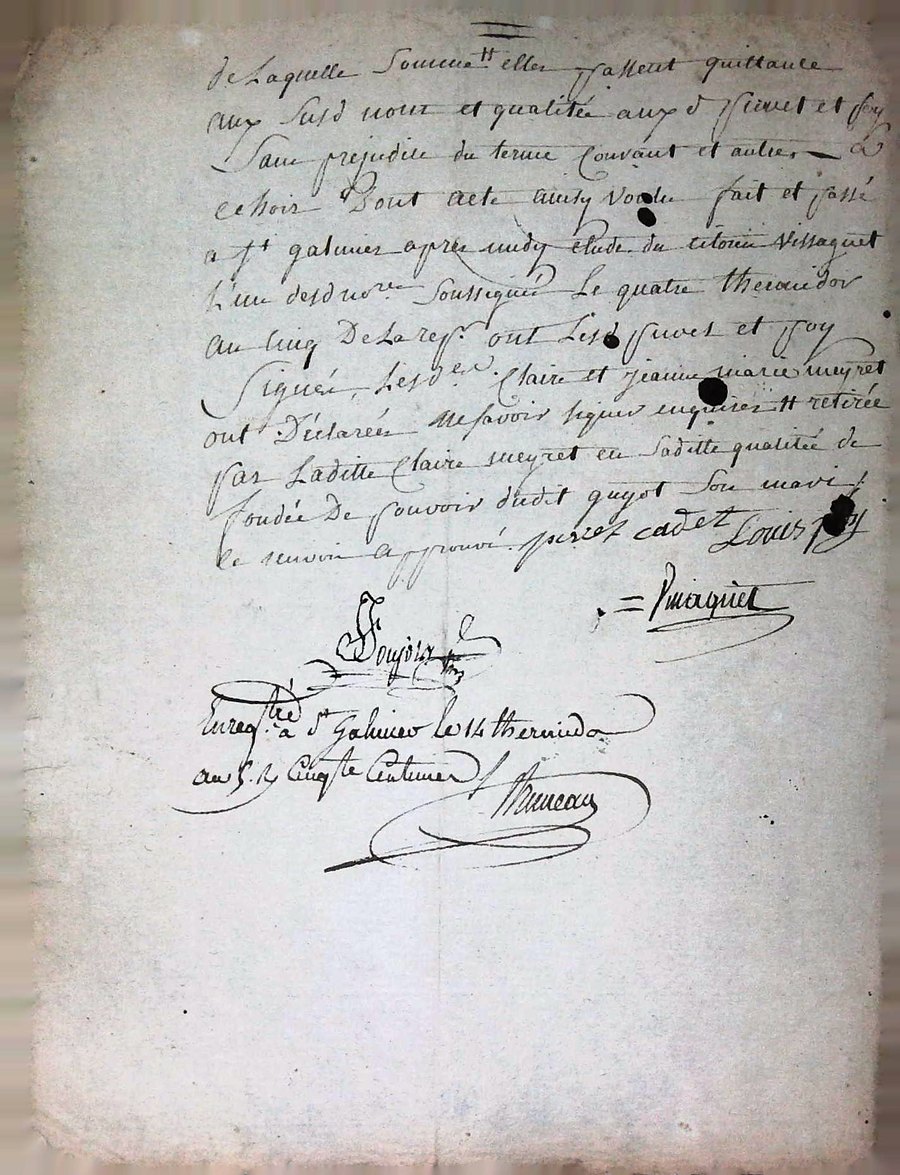 de Laquelle Somme # elles passent quittance
aux susd nom et qualitée aux d puvet et foy
Sans prejudice du terme Courant et autres a
echoir Dont acte ainsy voulu fait et passé
a St galmier apres midy etude du citoien Vissaguet
L'un desd nores Soussignés Le quatre thermidor
an cinq De La rep. ont Lesd puvet et foy
Signés, Lesd es. Claire et jeanne marie meyret
ont Déclarées ne savoir signer enquises # retirée
par Laditte Claire meyret en Saditte qualitée de
fondée De pouvoir dudit guyot Son mari /
le renvoi approuvé. cadet Louis
Vissaguet

Enregtré a St Galmier le 14 thermidor
an 5. R Cinqte Centimes